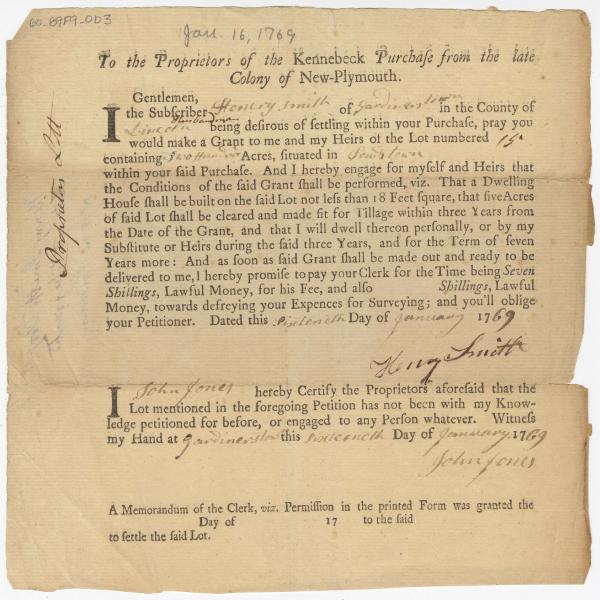 60-89F9-003
Jan. 16, 1769
To the Proprietors of the Kennebeck Purchase from the late
Colony of New-Plymouth.
Gentlemen,
I the Subscriber Henery Smith of Gardinerstown in the County of
Lincoln Husbandman being desirous of settling within your Purchase, pray you
would make a Grant to me and my Heirs of the Lot numbered 15
containing Acres, situated in
within your said Purchase. And I hereby engage for myself and Heirs that
the Conditions of the said Grant shall be performed, viz. That a Dwelling
House shall be built on the said Lot not less than 18 Feet square, that five Acres
of said Lot shall be cleared and made fit for Tillage within three Years from
the Date of the Grant, and that I will dwell thereon personally, or by my
Substitute or Heirs during the said three Years, and for the Term of seven
Years more: And as soon as said Grant shall be made out and ready to be
delivered to me, I hereby promise to pay your Clerk for the Time being Seven
Shillings, Lawful Money, for his Fee, and also Shillings, Lawful
Money, towards defreying your Expences for Surveying; and you'll oblige
your Petitioner. Dated this Sixteneth Day of January 1769
Henry Smith
I John Jones hereby Certify the Proprietors aforesaid that the
Lot mentioned in the foregoing Petition has not been with my Know-
ledge petitioned for before, or engaged to any Person whatever. Witness
my Hand at Gardinerstown this sixteneth Day of January 1769
John Jones
A Memorandum of the Clerk, viz. Permission in the printed Form was granted the
Day of 17 to the said
to settle the said Lot.
Proprietors Lott